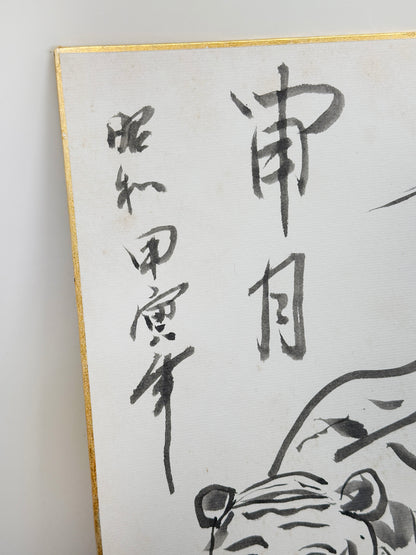 月
昭和甲寅年